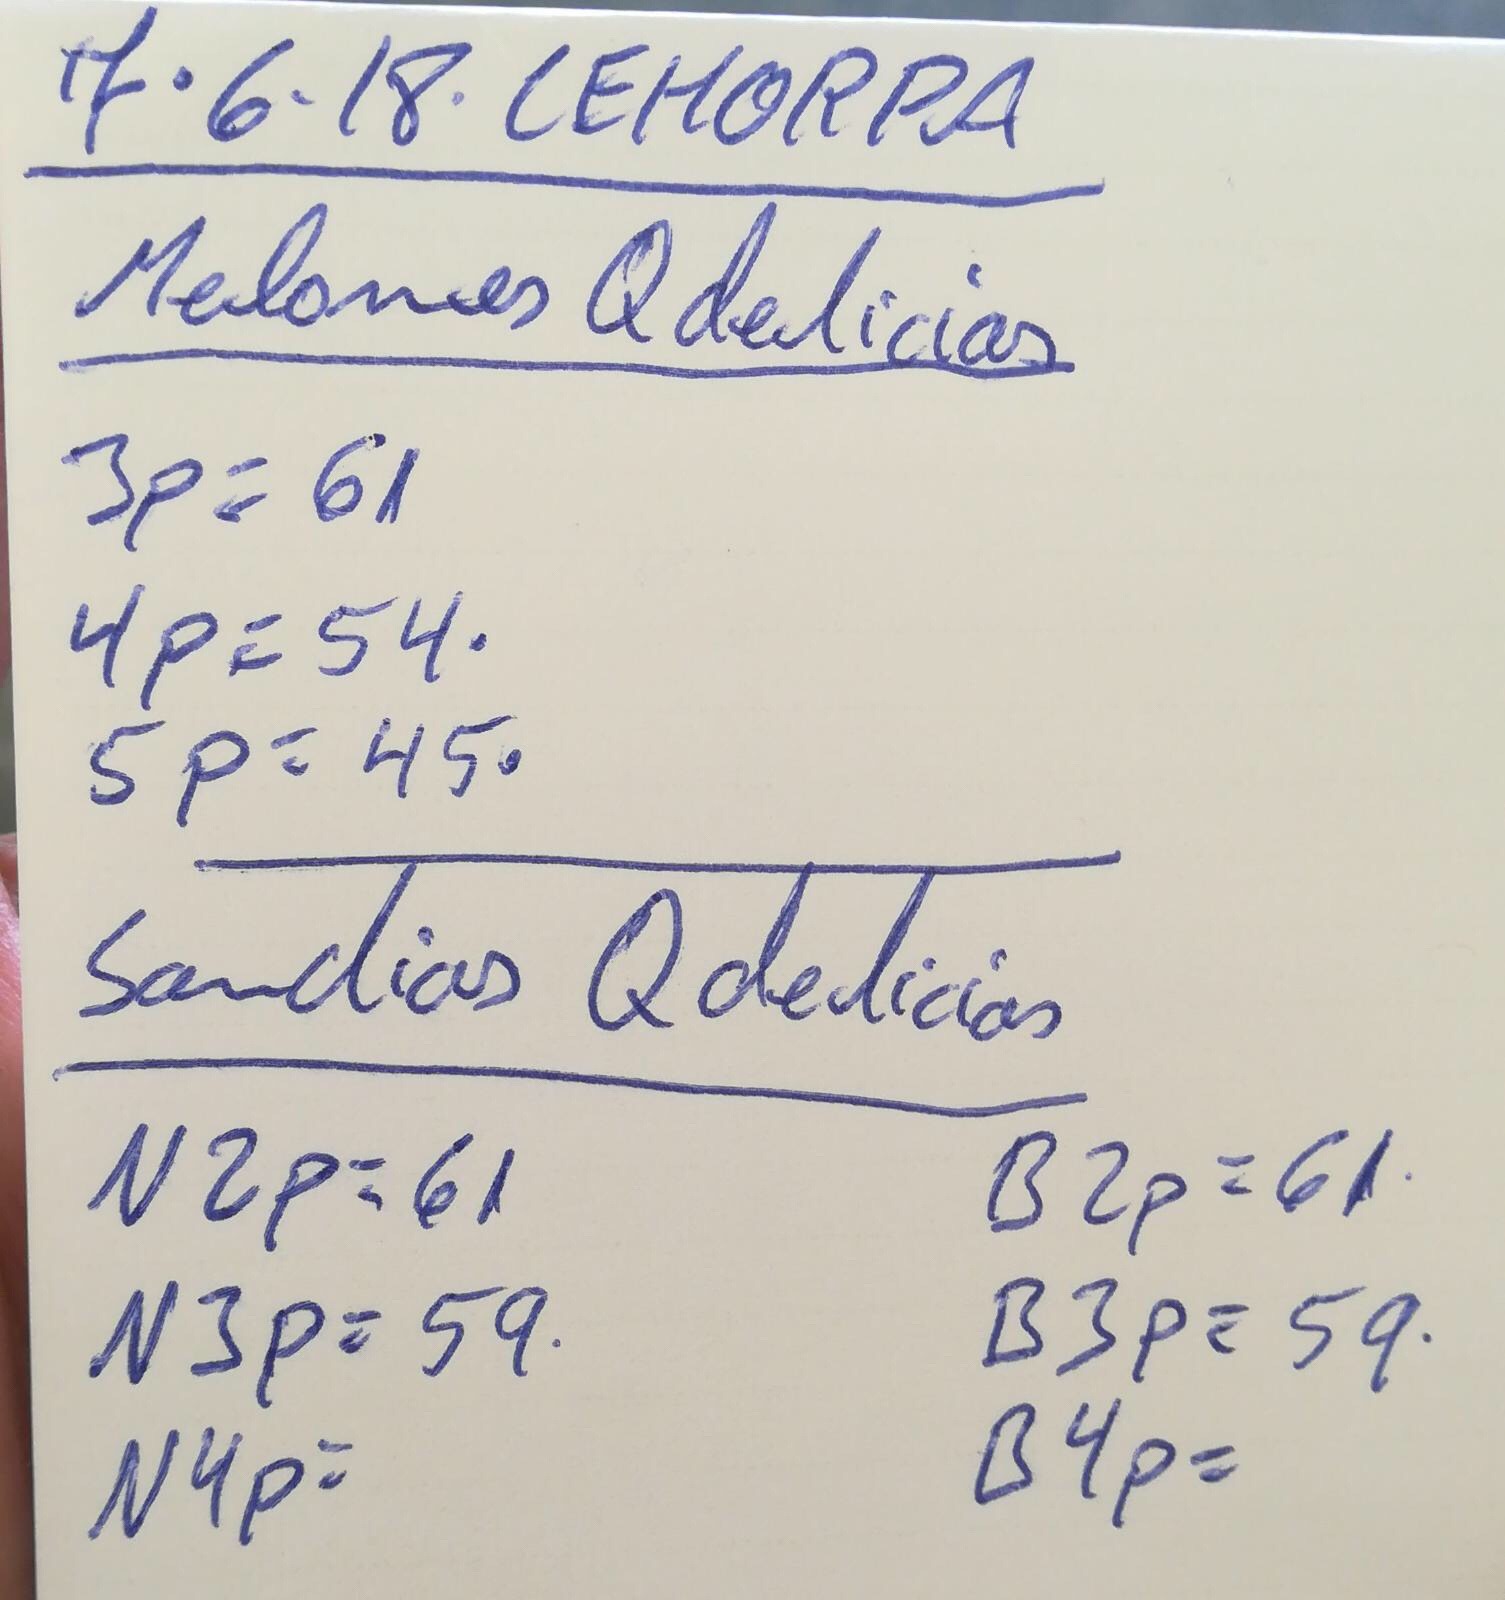 7.6.18. CEHORPA
Melones Qdelicias
3p= 61
4p= 54.
5p= 45.
Sandias Qdelicias
N2p=61 B2p=61.
N3p=59. B3p=59.
N4p= B4p=